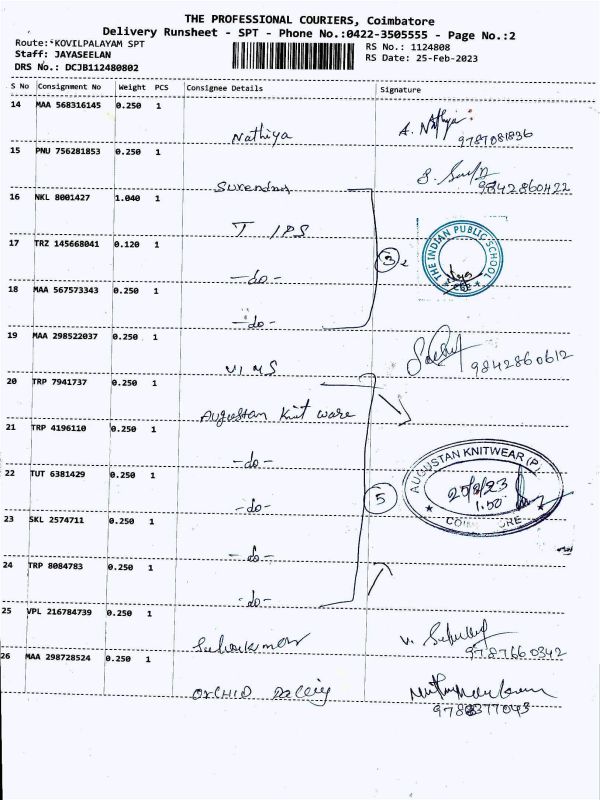 THE PROFESSIONAL COURIERS, Coimbatore
Delivery Runsheet - SPT - Phone No.:0422-3505555 - Page No.:2
Route: KOVILPALAYAM SPT
RS No.: 1124808
Staff: JAYASEELAN
RS Date: 25-Feb-2023
DRS No.: DCJB112480802
S No Consignment No Weight PCS Consignee Details Signature
14 MAA 568316145 0.250 1
Nathiya A. Nathiya
9787081836
15 PNU 756281853 0.250 1
Surendar
9842860422
16 NKL 8001427 1.040 1
T IPS
THE INDIAN PUBLIC SCHOOL
CBE
17 TRZ 145668041 0.120 1
-do-
3
18 MAA 567573343 0.250 1
-do-
19 MAA 298522037 0.250 1
VIMS
9842860612
20 TRP 7941737 0.250 1
Augustan Knit ware
21 TRP 4196110 0.250 1
-do-
AUGUSTAN KNITWEAR (P)
1.50
22 TUT 6381429 0.250 1
-do-
5
23 SKL 2574711 0.250 1
-do-
24 TRP 8084783 0.250 1
-do-
25 VPL 216784739 0.250 1
9787660342
26 MAA 298728524 0.250 1
ORCHID